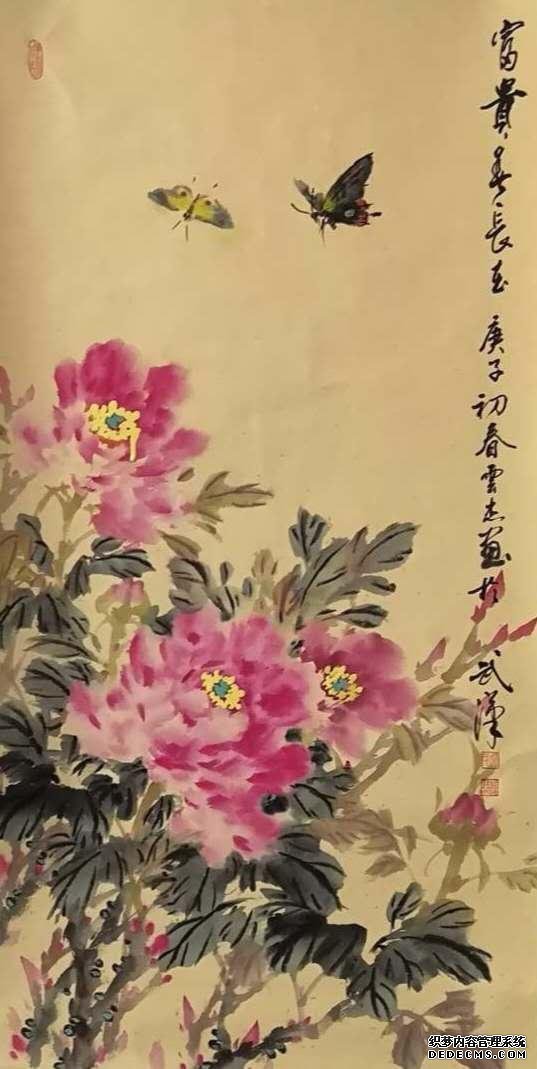 富貴春長在 庚子初春雲杰画於武漢
织梦内容管理系统
DEDECMS.COM